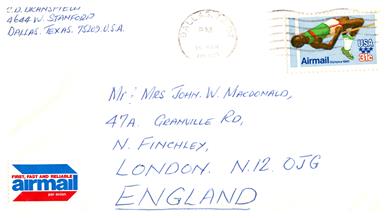 C.D. DEANSFIELD
4644 W. STANFORD
DALLAS, TEXAS. 75209. U.S.A.
DALLAS, TX
PM
Airmail Olympics 1980
USA
31c
Mr & Mrs JOHN. W. MACDONALD,
47A. GRANVILLE RD,
N. FINCHLEY,
LONDON. N.12. OJG
ENGLAND
FIRST, FAST AND RELIABLE
airmail
par avion